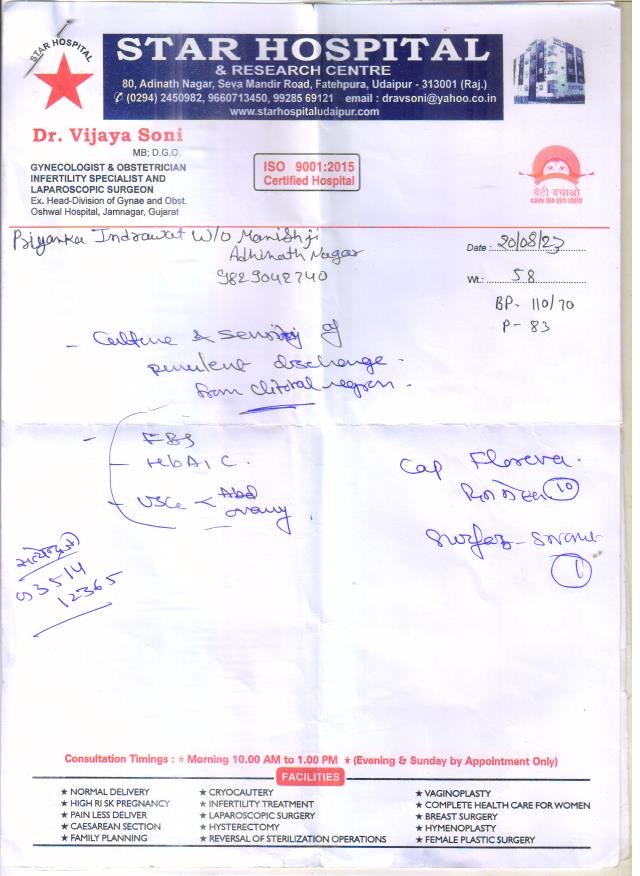 STAR HOSPITAL
STAR HOSPITAL
& RESEARCH CENTRE
80, Adinath Nagar, Seva Mandir Road, Fatehpura, Udaipur - 313001 (Raj.)
✆ (0294) 2450982, 9660713450, 99285 69121 email : dravsoni@yahoo.co.in
www.starhospitaludaipur.com
Dr. Vijaya Soni
MB; D.G.O.
GYNECOLOGIST & OBSTETRICIAN
INFERTILITY SPECIALIST AND
LAPAROSCOPIC SURGEON
Ex. Head-Division of Gynae and Obst.
Oshwal Hospital, Jamnagar, Gujarat
ISO 9001:2015
Certified Hospital
बेटी बचाओ
save the girl child
Priyanka Indrawat W/o Manishji
Adhinath Nagar
9829042740
Date : 20/08/23
Wt.: 58
BP - 110/70
P - 83
- Culture & sensitivity of
purulent discharge
from clitoral region.
- FBS
- HbA1C.
- USG < Abd
ovary
Cap Floreva
10
Surfaz-
1
53514
12365
Consultation Timings : ★ Morning 10.00 AM to 1.00 PM ★ (Evening & Sunday by Appointment Only)
FACILITIES
★ NORMAL DELIVERY
★ HIGH RI SK PREGNANCY
★ PAIN LESS DELIVER
★ CAESAREAN SECTION
★ FAMILY PLANNING
★ CRYOCAUTERY
★ INFERTILITY TREATMENT
★ LAPAROSCOPIC SURGERY
★ HYSTERECTOMY
★ REVERSAL OF STERILIZATION OPERATIONS
★ VAGINOPLASTY
★ COMPLETE HEALTH CARE FOR WOMEN
★ BREAST SURGERY
★ HYMENOPLASTY
★ FEMALE PLASTIC SURGERY